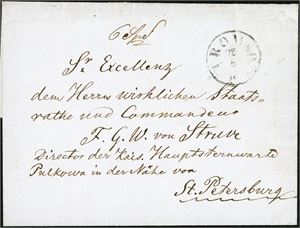 6 Spd
TROMSÖ
Sr Excellenz
dem Herrn wirklichen Staats-
rathe und Commandeur
F. G. W. von Struve
Director der Kais. Hauptsternwarte
Pulkowa in der Nähe von
St. Petersburg